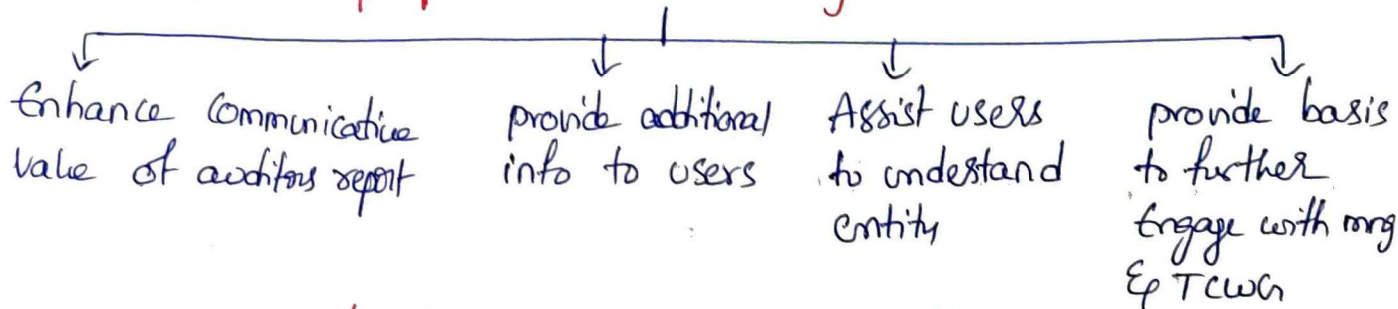 Enhance Communicative
value of auditors report
provide additional
info to users
Assist users
to undestand
entity
provide basis
to further
Engage with mng
& TCWG